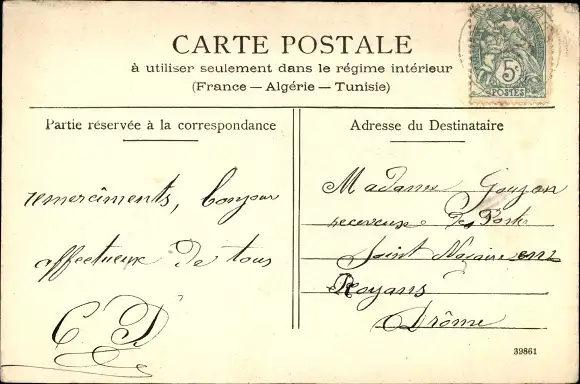 CARTE POSTALE
à utiliser seulement dans le régime intérieur
(France — Algérie — Tunisie)
5c
POSTES
Partie réservée à la correspondance
Adresse du Destinataire
remerciments, bonjour
affectueux de tous
C D
Madame Goujon
receveuse des Postes
Saint Nazaire en
Royans
Drôme
39861